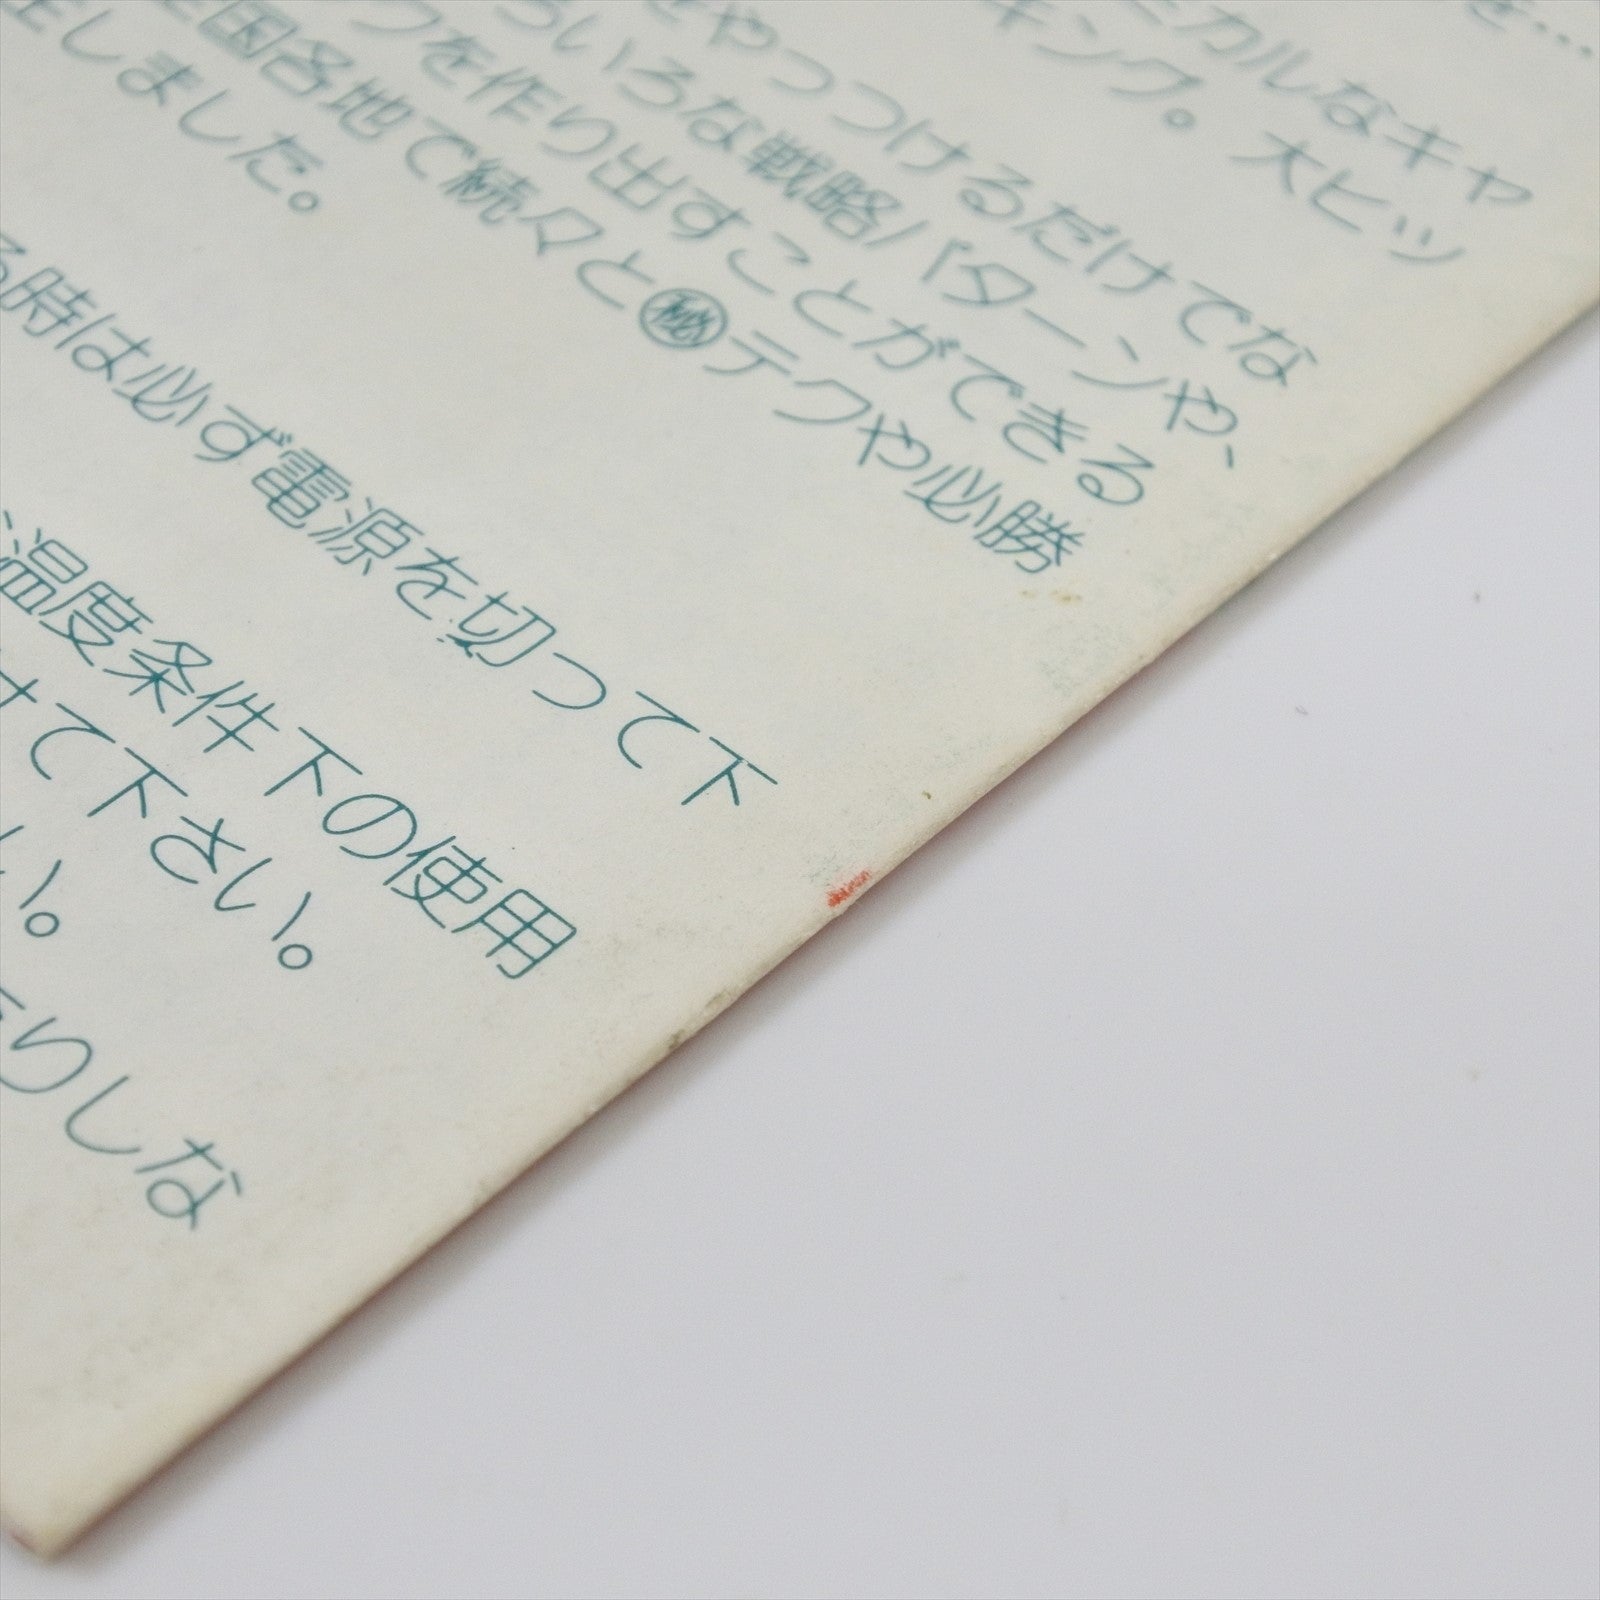 を…
ニカルなキャ
キング。大ヒッ
をやっつけるだけでな
ろいろな戦略パターンや、
クを作り出すことができる
全国各地で続々と㊙テクや必勝
生しました。
る時は必ず電源を切って下
温度条件下の使用
けて下さい。
い。
りしな